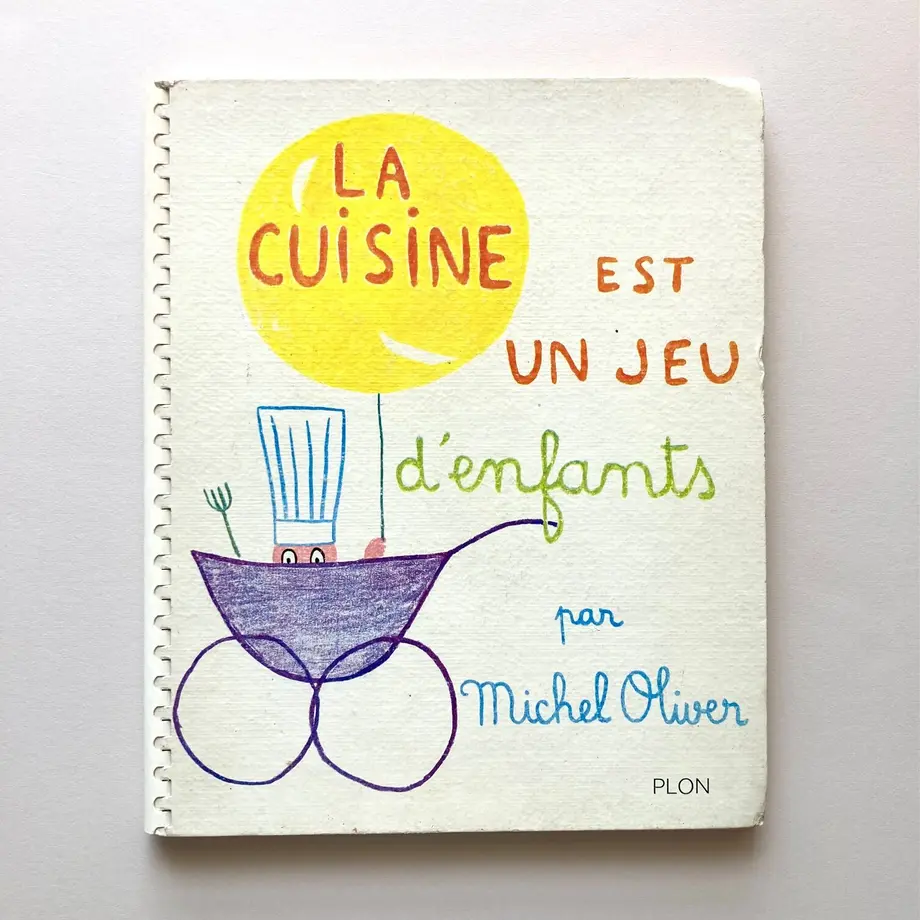 LA
CUiSiNE
EST
UN JEU
d'enfants
par
Michel Oliver
PLON